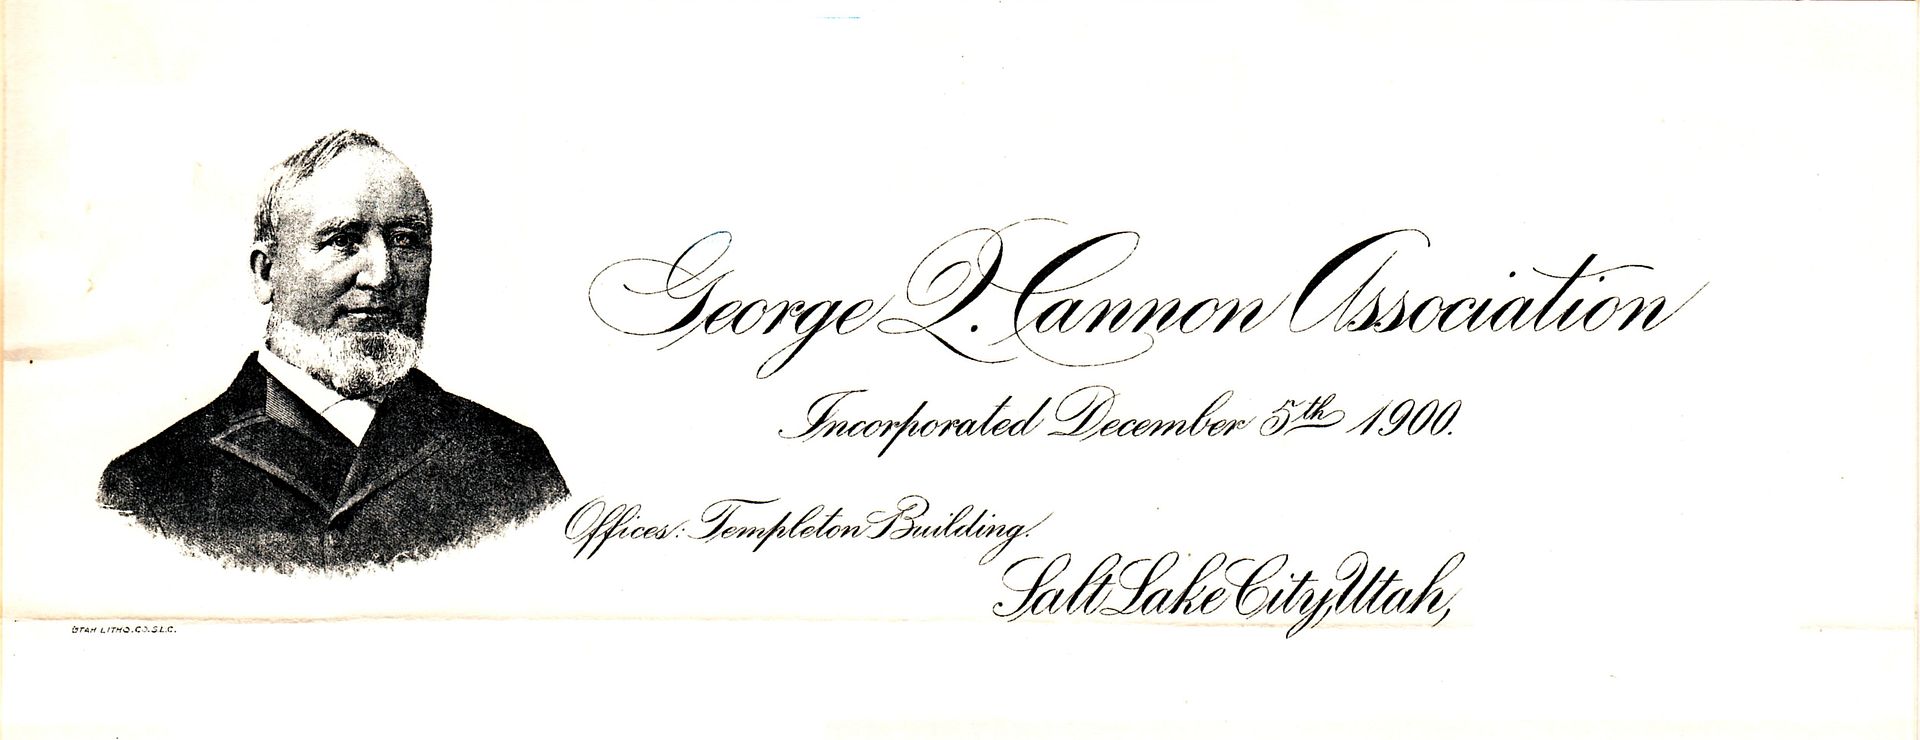 George Q. Cannon Association
Incorporated December 5th 1900.
Offices: Templeton Building.
Salt Lake City, Utah,
UTAH LITHO. CO. S.L.C.